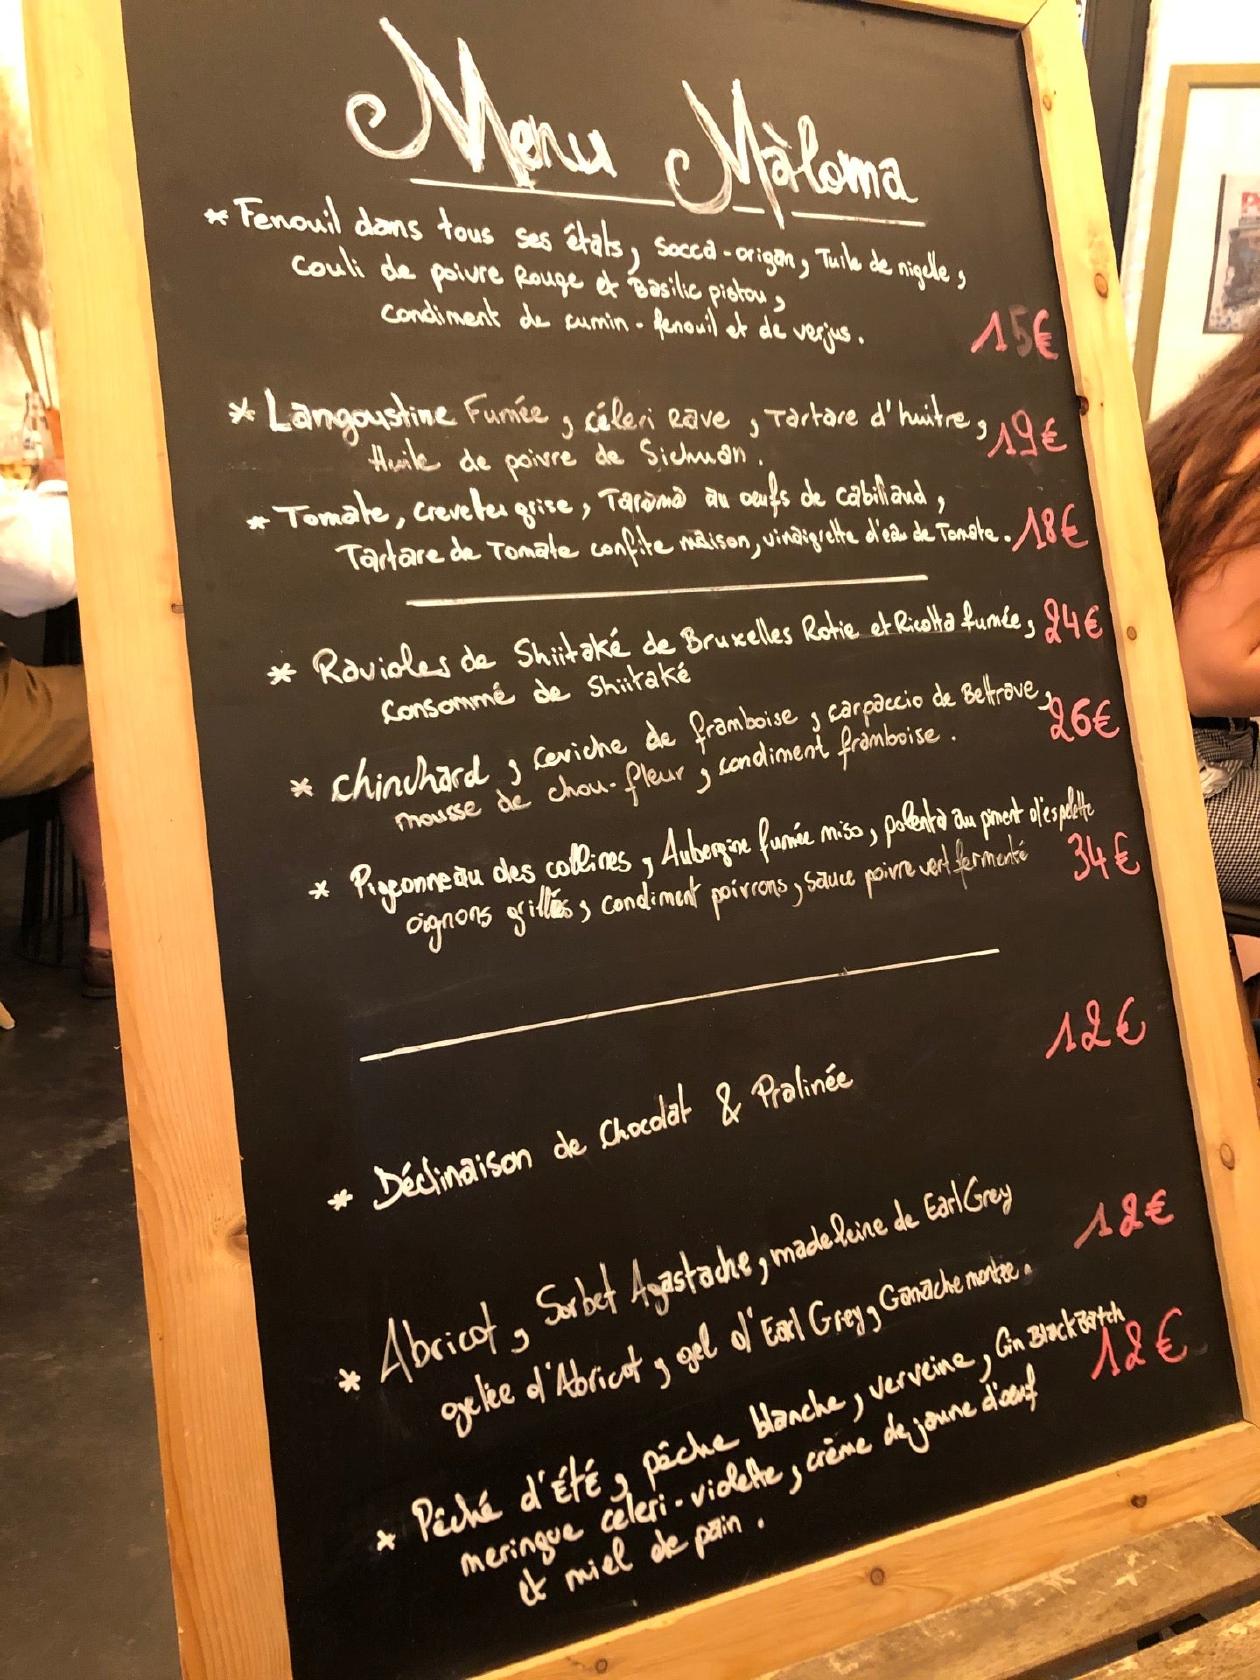 Menu Màloma
* Fenouil dans tous ses états, Socca-origan, Tuile de nigelle,
Couli de poivre Rouge et Basilic pistou,
condiment de cumin-fenouil et de verjus.
15€
* Langoustine Fumée, céleri Rave, Tartare d'huitre,
Huile de poivre de Sichuan.
19€
* Tomate, crevettes grise, Tarama au œufs de cabillaud,
Tartare de Tomate confite maison, vinaigrette d'eau de Tomate.
18€
* Ravioles de Shiitaké de Bruxelles Rotie et Ricotta fumée,
Consommé de Shiitaké
24€
* Chinchard, ceviche de framboise, carpaccio de Bettrave,
mousse de chou-fleur, condiment framboise.
26€
* Pigeonneau des collines, Aubergine fumée miso, polenta au piment d'espelette
oignons grillés, condiment poivrons, sauce poivre vert fermenté
34€
12€
* Déclinaison de Chocolat & Pralinée
* Abricot, Sorbet Agastache, madeleine de Earl Grey
gelée d'Abricot, gel d'Earl Grey, Ganache montée.
12€
* Pêché d'Été, pêche blanche, verveine, Gin Black Batch
meringue celeri-violette, crème de jaune d'œuf
et miel de pain.
12€